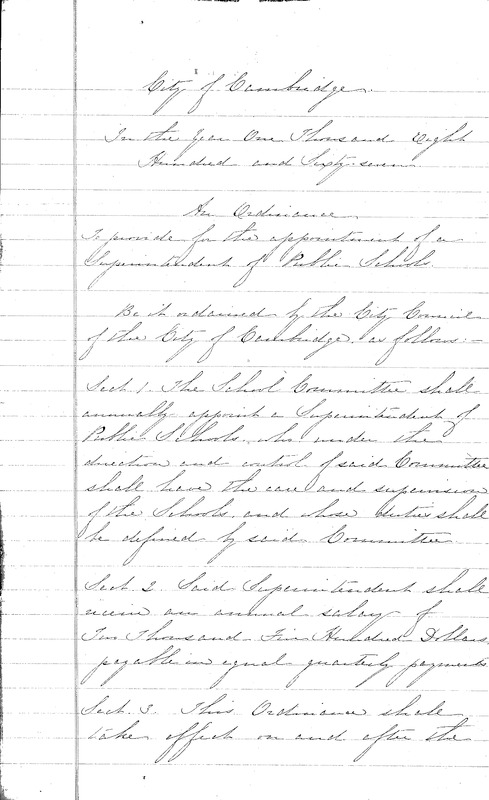 City of Cambridge.
In the Year One Thousand Eight
Hundred and Sixty-seven
An Ordinance
To provide for the appointment of a
Superintendent of Public Schools
Be it ordained by the City Council
of the City of Cambridge, as follows:-
Sect. 1. The School Committee shall
annually appoint a Superintendent of
Public Schools, who under the
direction and control of said Committee
shall have the care and supervision
of the Schools, and whose duties shall
be defined by said Committee
Sect. 2. Said Superintendent shall
receive an annual salary of
Two Thousand Five Hundred Dollars,
payable in equal quarterly payments
Sect. 3. This Ordinance shall
take effect on and after the